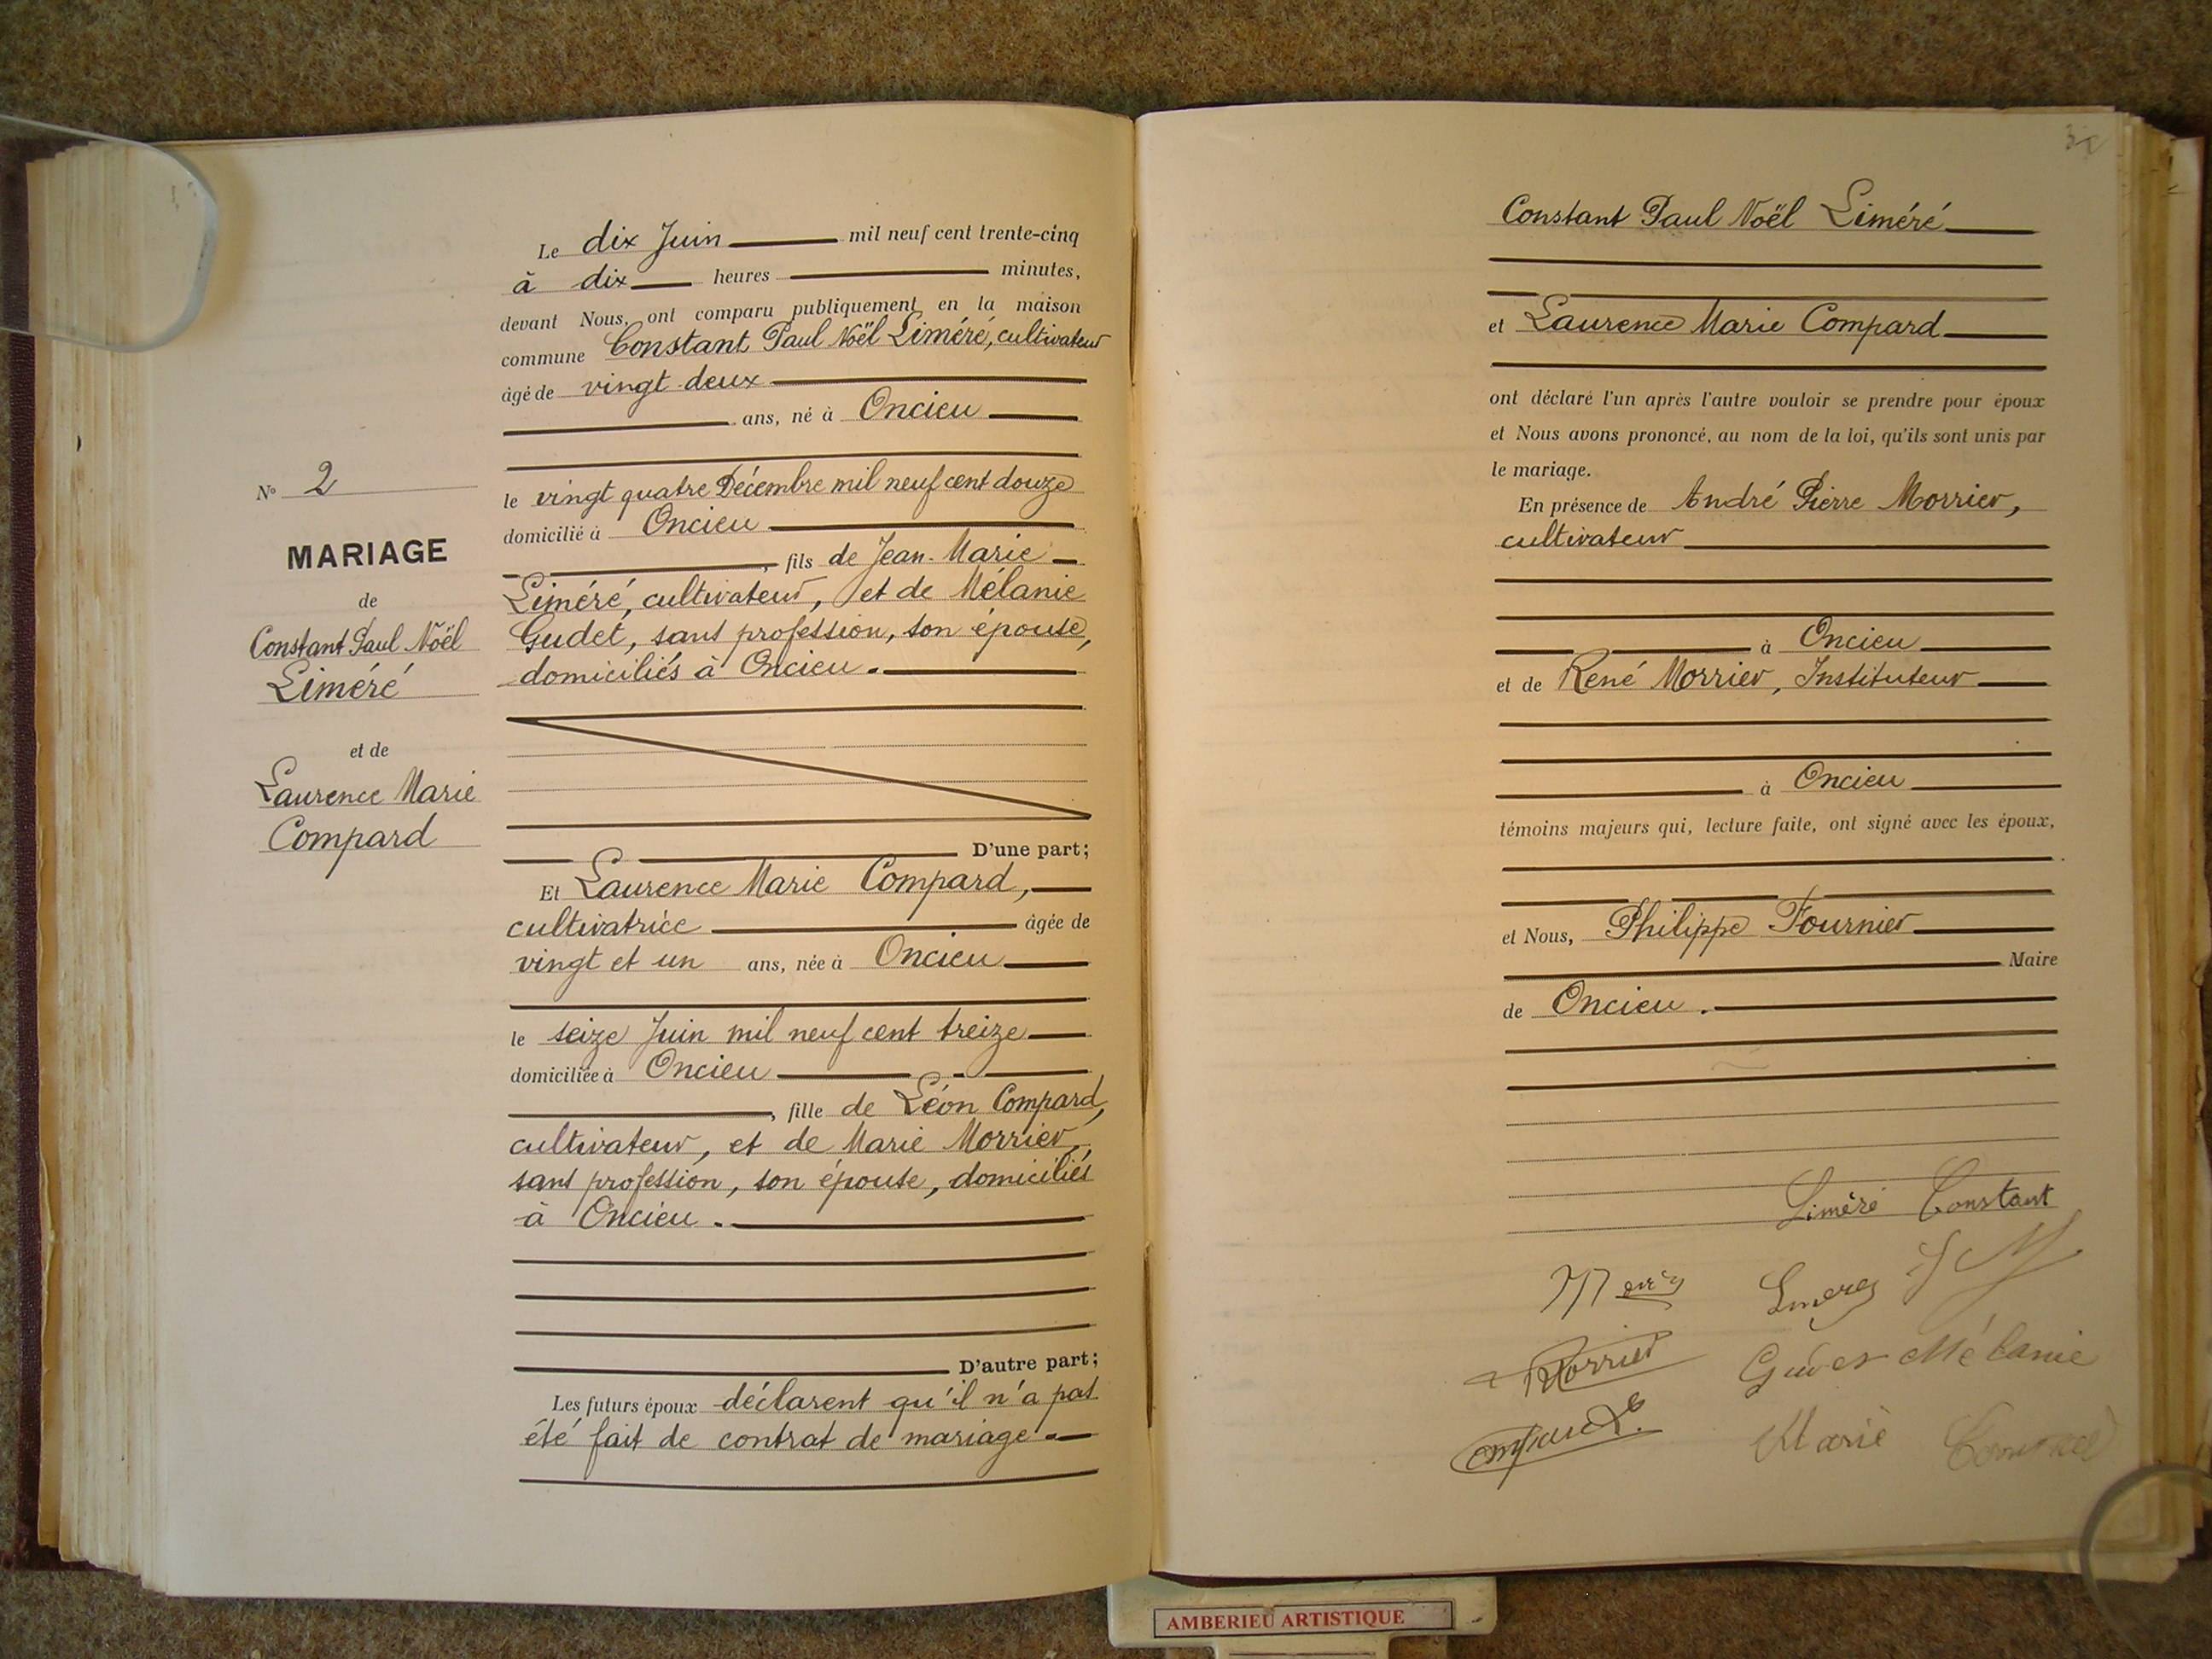 Le dix Juin mil neuf cent trente-cinq
à dix heures minutes,
devant Nous, ont comparu publiquement en la maison
commune Constant Paul Noël Liméré, cultivateur
âgé de vingt-deux
ans, né à Oncieu
le vingt quatre Décembre mil neuf cent douze
domicilié à Oncieu
, fils de Jean-Marie
Liméré, cultivateur, et de Mélanie
Gudet, sans profession, son épouse,
domiciliés à Oncieu.
D'une part;
Et Laurence Marie Compard,
cultivatrice âgée de
vingt et un ans, née à Oncieu
le seize Juin mil neuf cent treize
domiciliée à Oncieu
, fille de Léon Compard,
cultivateur, et de Marie Morrier,
sans profession, son épouse, domiciliés
à Oncieu.
D'autre part;
Les futurs époux déclarent qu'il n'a pas
été fait de contrat de mariage.
Nº 2
MARIAGE
de
Constant Paul Noël
Liméré
et de
Laurence Marie
Compard
Constant Paul Noël Liméré
et Laurence Marie Compard
ont déclaré l'un après l'autre vouloir se prendre pour époux
et Nous avons prononcé, au nom de la loi, qu'ils sont unis par
le mariage.
En présence de André Pierre Morrier,
cultivateur
à Oncieu
et de René Morrier, Instituteur
à Oncieu
témoins majeurs qui, lecture faite, ont signé avec les époux,
et Nous, Philippe Fournier
Maire
de Oncieu.
Liméré Constant
Morrier
Mélanie
Marie
AMBERIEU ARTISTIQUE